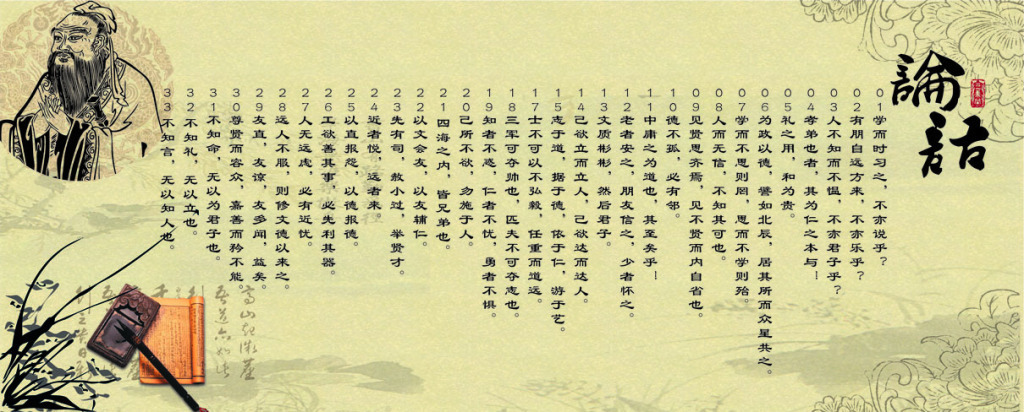 論語
01学而时习之，不亦说乎？
02有朋自远方来，不亦乐乎？
03人不知而不愠，不亦君子乎？
04孝弟也者，其为仁之本与！
05礼之用，和为贵。
06为政以德，譬如北辰，居其所而众星共之。
07学而不思则罔，思而不学则殆。
08人而无信，不知其可也。
09见贤思齐焉，见不贤而内自省也。
10德不孤，必有邻。
11中庸之为道也，其至矣乎！
12老者安之，朋友信之，少者怀之。
13文质彬彬，然后君子。
14己欲立而立人，己欲达而达人。
15志于道，据于德，依于仁，游于艺。
17士不可以不弘毅，任重而道远。
18三军可夺帅也，匹夫不可夺志也。
19知者不惑，仁者不忧，勇者不惧。
20己所不欲，勿施于人。
21四海之内，皆兄弟也。
22以文会友，以友辅仁。
23先有司，赦小过，举贤才。
24近者悦，远者来。
25以直报怨，以德报德。
26工欲善其事，必先利其器。
27人无远虑，必有近忧。
28远人不服，则修文德以来之。
29友直，友谅，友多闻，益矣。
30尊贤而容众，嘉善而矜不能。
31不知命，无以为君子也。
32不知礼，无以立也。
33不知言，无以知人也。